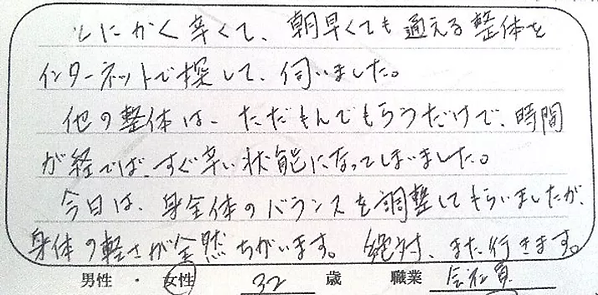 とにかく辛くて、朝早くても通える整体を
インターネットで探して、伺いました。
他の整体は、ただもんでもらうだけで、時間
が経てば、すぐ辛い状態になってしまいました。
今日は、身全体のバランスを調整してもらいましたが、
身体の軽さが全然ちがいます。絶対、また行きます。
男性 ・ 女性 32 歳 職業 会社員